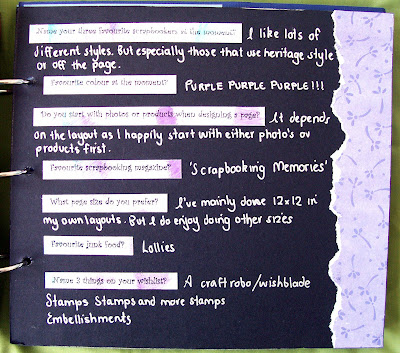 Name your three favourite scrapbookers at the moment? I like lots of
different styles. But especially those that use heritage style
or off the page.
Favourite colour at the moment? PURPLE PURPLE PURPLE!!!
Do you start with photos or products when designing a page? It depends
on the layout as I happily start with either photo's or
products first.
Favourite scrapbooking magazine? 'Scrapbooking Memories'
What page size do you prefer? I've mainly done 12x12 in
my own layouts. But I do enjoy doing other sizes
Favourite junk food? Lollies
Name 3 things on your wishlist? A craft robo/wishblade
Stamps Stamps and more stamps
Embellishments